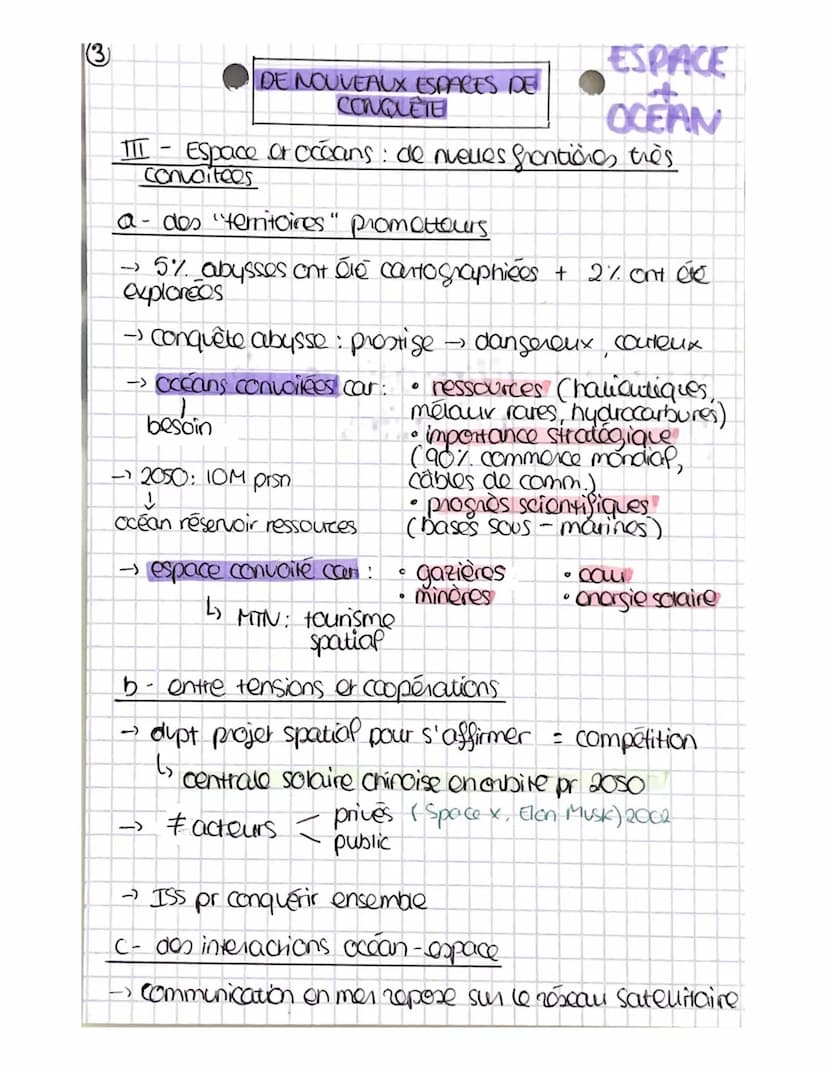 (3)
ESPACE
+
OCÉAN
DE NOUVEAUX ESPACES DE
CONQUÊTE
III - Espace et océans : de nvelles frontières très
convoitées
a - des "territoires" prometteurs
→ 5% abysses ont été cartographiées + 2% ont été
explorées
→ conquête abysse : prestige → dangereux, couteux
→ océans convoitées car :
besoin
• ressources (halieutiques,
métaux rares, hydrocarbures)
• importance stratégique
(90% commerce mondial,
câbles de comm.)
• progrès scientifiques
(bases sous-marines)
→ 2050: 10M prsn
↓
océan réservoir ressources
→ espace convoité car :
• gazières
• minères
• eau
• énergie solaire
↳ MTN: tourisme
spatial
b - entre tensions et coopérations
→ dvpt projet spatial pour s'affirmer = compétition
↳ centrale solaire chinoise en orbite pr 2050
→ ≠ acteurs < privés (Space X, Elon Musk) 2002
public
→ ISS pr conquérir ensemble
c - des interactions océan-espace
→ communication en mer repose sur le réseau satellitaire